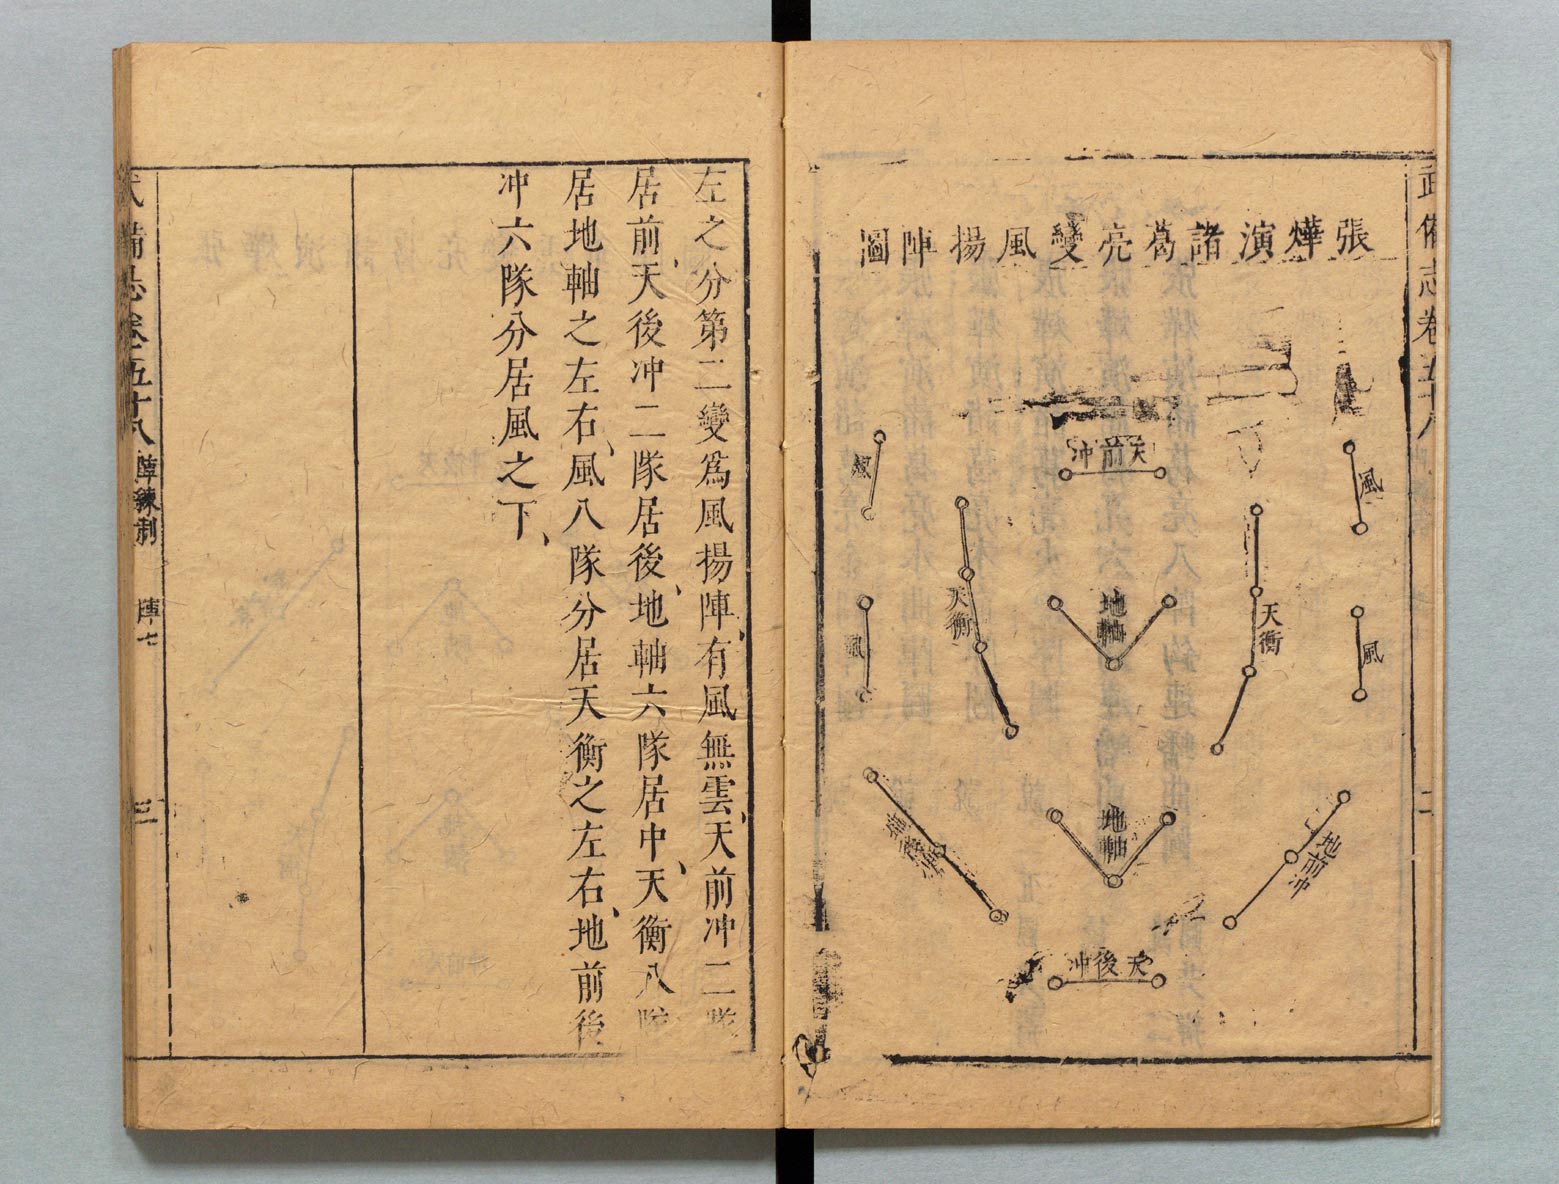 武備志卷五十八
二
張燁演諸葛亮變風揚陣圖
天前冲
風
風
風
風
天衡
天衡
地軸
地軸
地前冲
天後冲
左之分第二變爲風揚陣、有風無雲、天前冲二隊
居前、天後冲二隊居後、地軸六隊居中、天衡八隊
居地軸之左右、風八隊分居天衡之左右、地前後
冲六隊分居風之下、
武備志卷五十八 陣練制 陣七
三